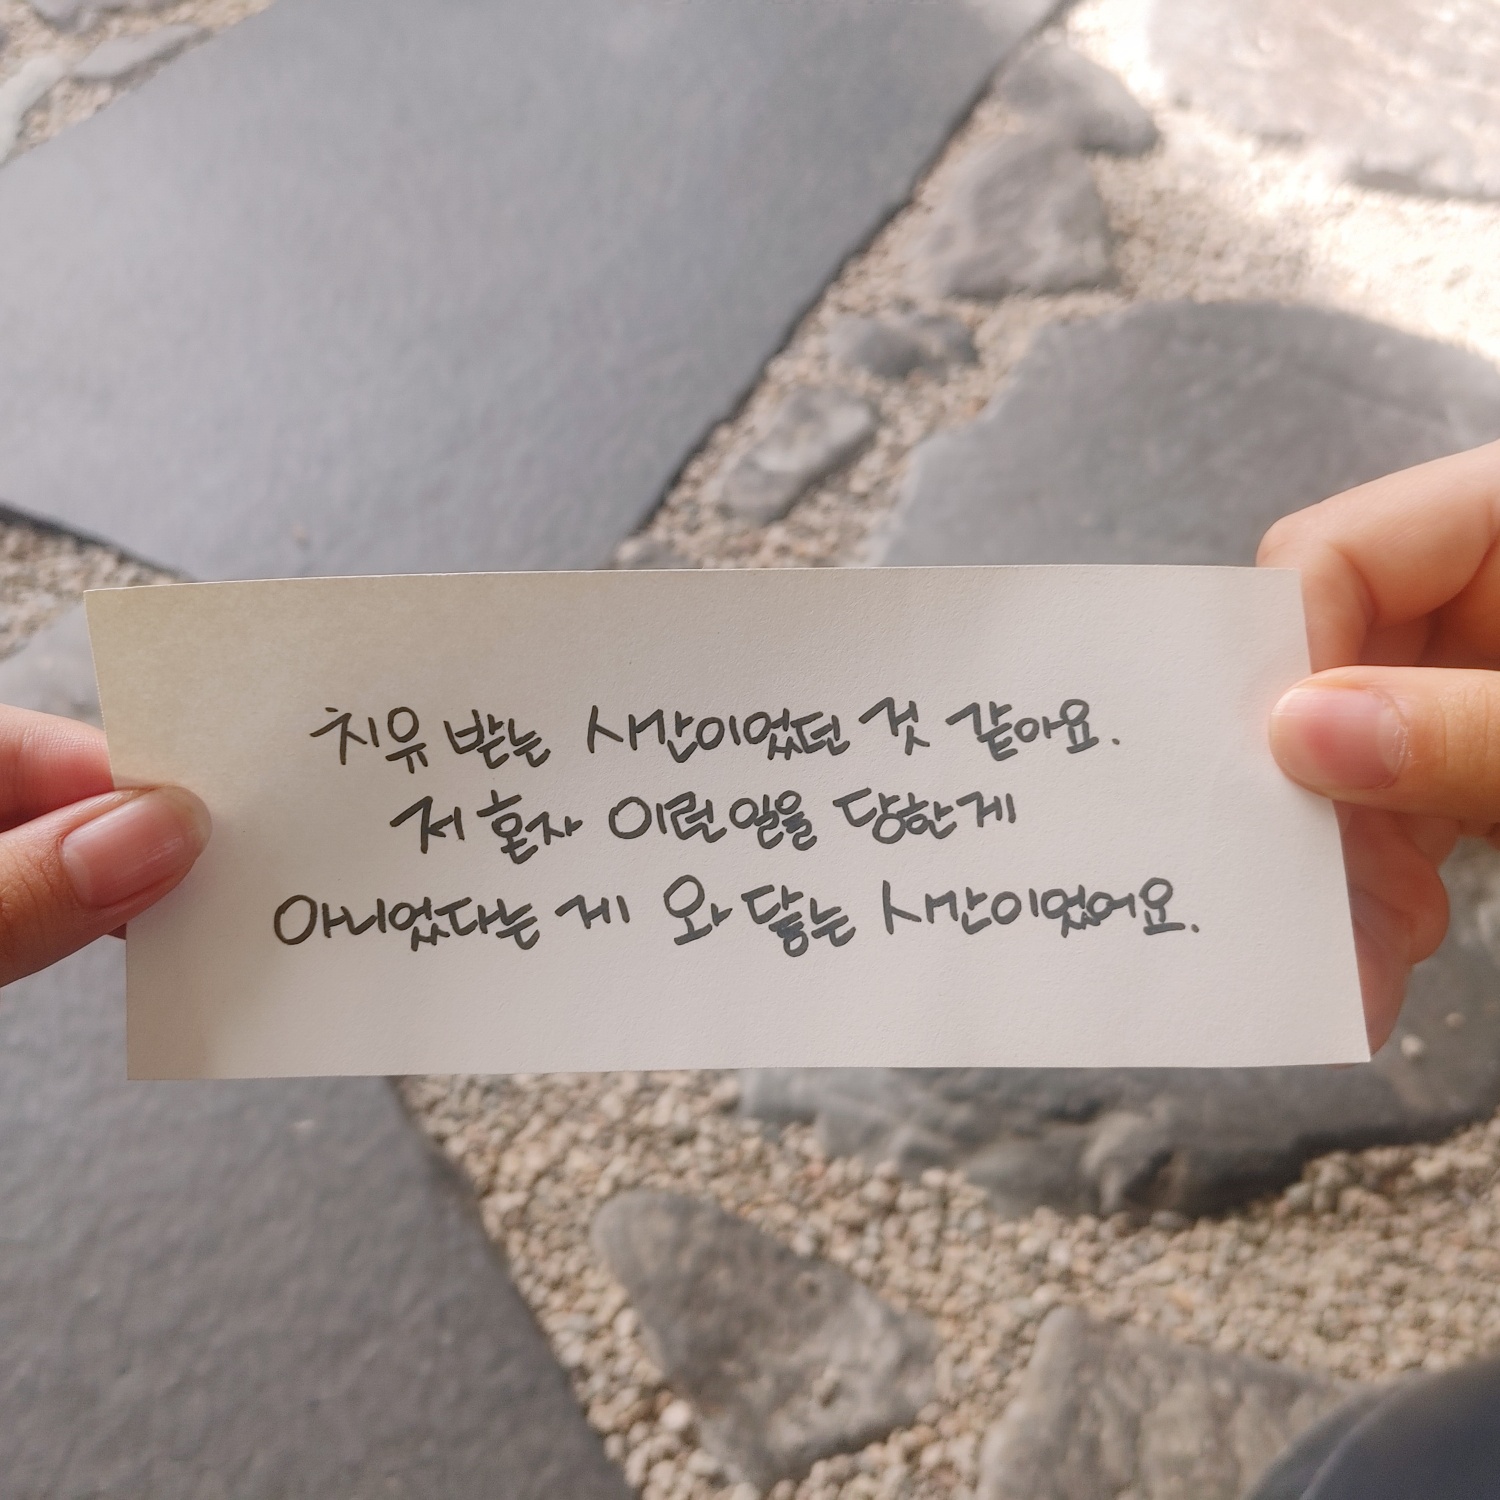 치유 받는 시간이었던 것 같아요.
저 혼자 이런 일을 당한 게
아니었다는 게 와 닿는 시간이었어요.